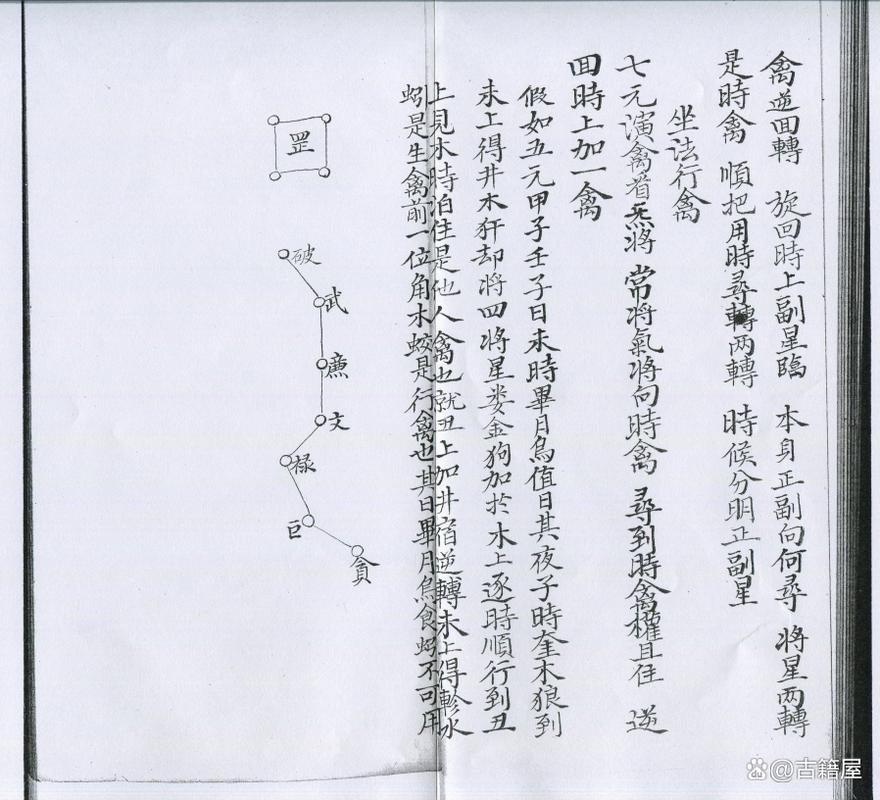 禽逆囬轉 旋回時上副星臨 本身正副向何尋 將星两轉
是時禽 順把用時尋轉两轉 時候分明正副星
坐法行禽
七元演禽看炁將 常将氣將向時禽 尋到時禽權且住 逆
囬時上加一禽
假如五元甲子壬子日未時畢月烏值日其夜子時奎木狼到
未上得井木犴却將四將星娄金狗加於木上逐時順行到丑
上見水時泊住是他人禽也就丑上加井宿逆轉未上得軫水
蚓是生禽前一位角木蛟是行禽也其日畢月烏食蚓不可用
罡
破
武
亷
文
禄
巨
貪
@古籍屋